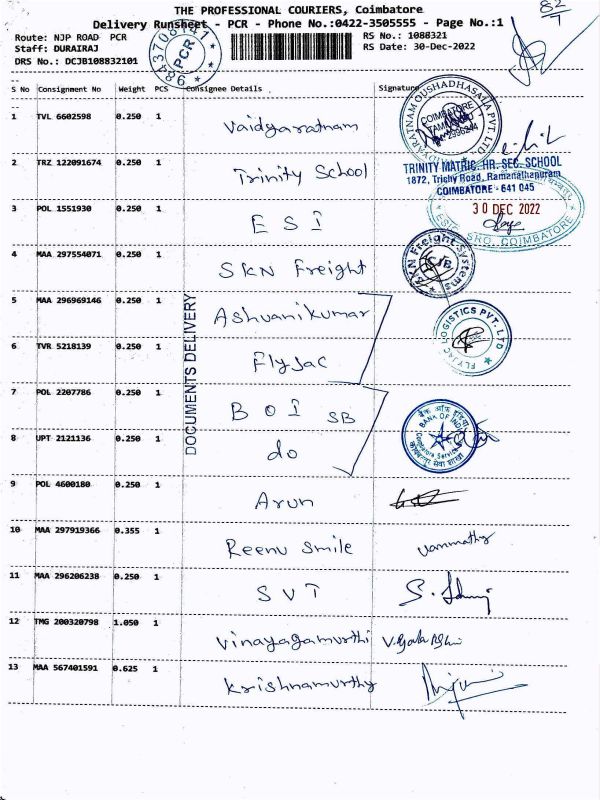 THE PROFESSIONAL COURIERS, Coimbatore
Delivery Runsheet - PCR - Phone No.:0422-3505555 - Page No.:1
82/1
Route: NJP ROAD PCR
Staff: DURAIRAJ
DRS No.: DCJB108832101
RS No.: 1088321
RS Date: 30-Dec-2022
9843708141
PCR
S No Consignment No Weight PCS Consignee Details Signature
1 TVL 6602598 0.250 1 Vaidyaratnam
COIMBATORE
2 TRZ 122091674 0.250 1 Trinity School
TRINITY MATRIC. HR. SEC. SCHOOL
1872, Trichy Road, Ramanathapuram
COIMBATORE - 641 045
3 POL 1551930 0.250 1 ESI
30 DEC 2022
COIMBATORE
4 MAA 297554071 0.250 1 SKN Freight
SKN Freight Systems
CJB
DOCUMENTS DELIVERY
5 MAA 296969146 0.250 1 Ashvanikumar
6 TVR 5218139 0.250 1 Flyjac
FLYJAC LOGISTICS PVT. LTD
7 POL 2207786 0.250 1 BOI SB
बैंक ऑफ इंडिया
BANK OF INDIA
8 UPT 2121136 0.250 1 do
9 POL 4600180 0.250 1 Arun
10 MAA 297919366 0.355 1 Reenu Smile
vanmathy
11 MAA 296206238 0.250 1 SVT
12 TMG 200320798 1.050 1 Vinayagamurthi
13 MAA 567401591 0.625 1 Krishnamurthy